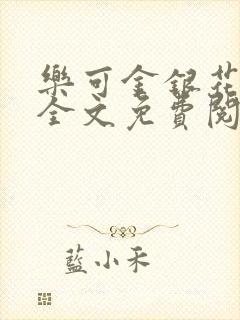 樂可金銀花
全文免費閱
藍小禾